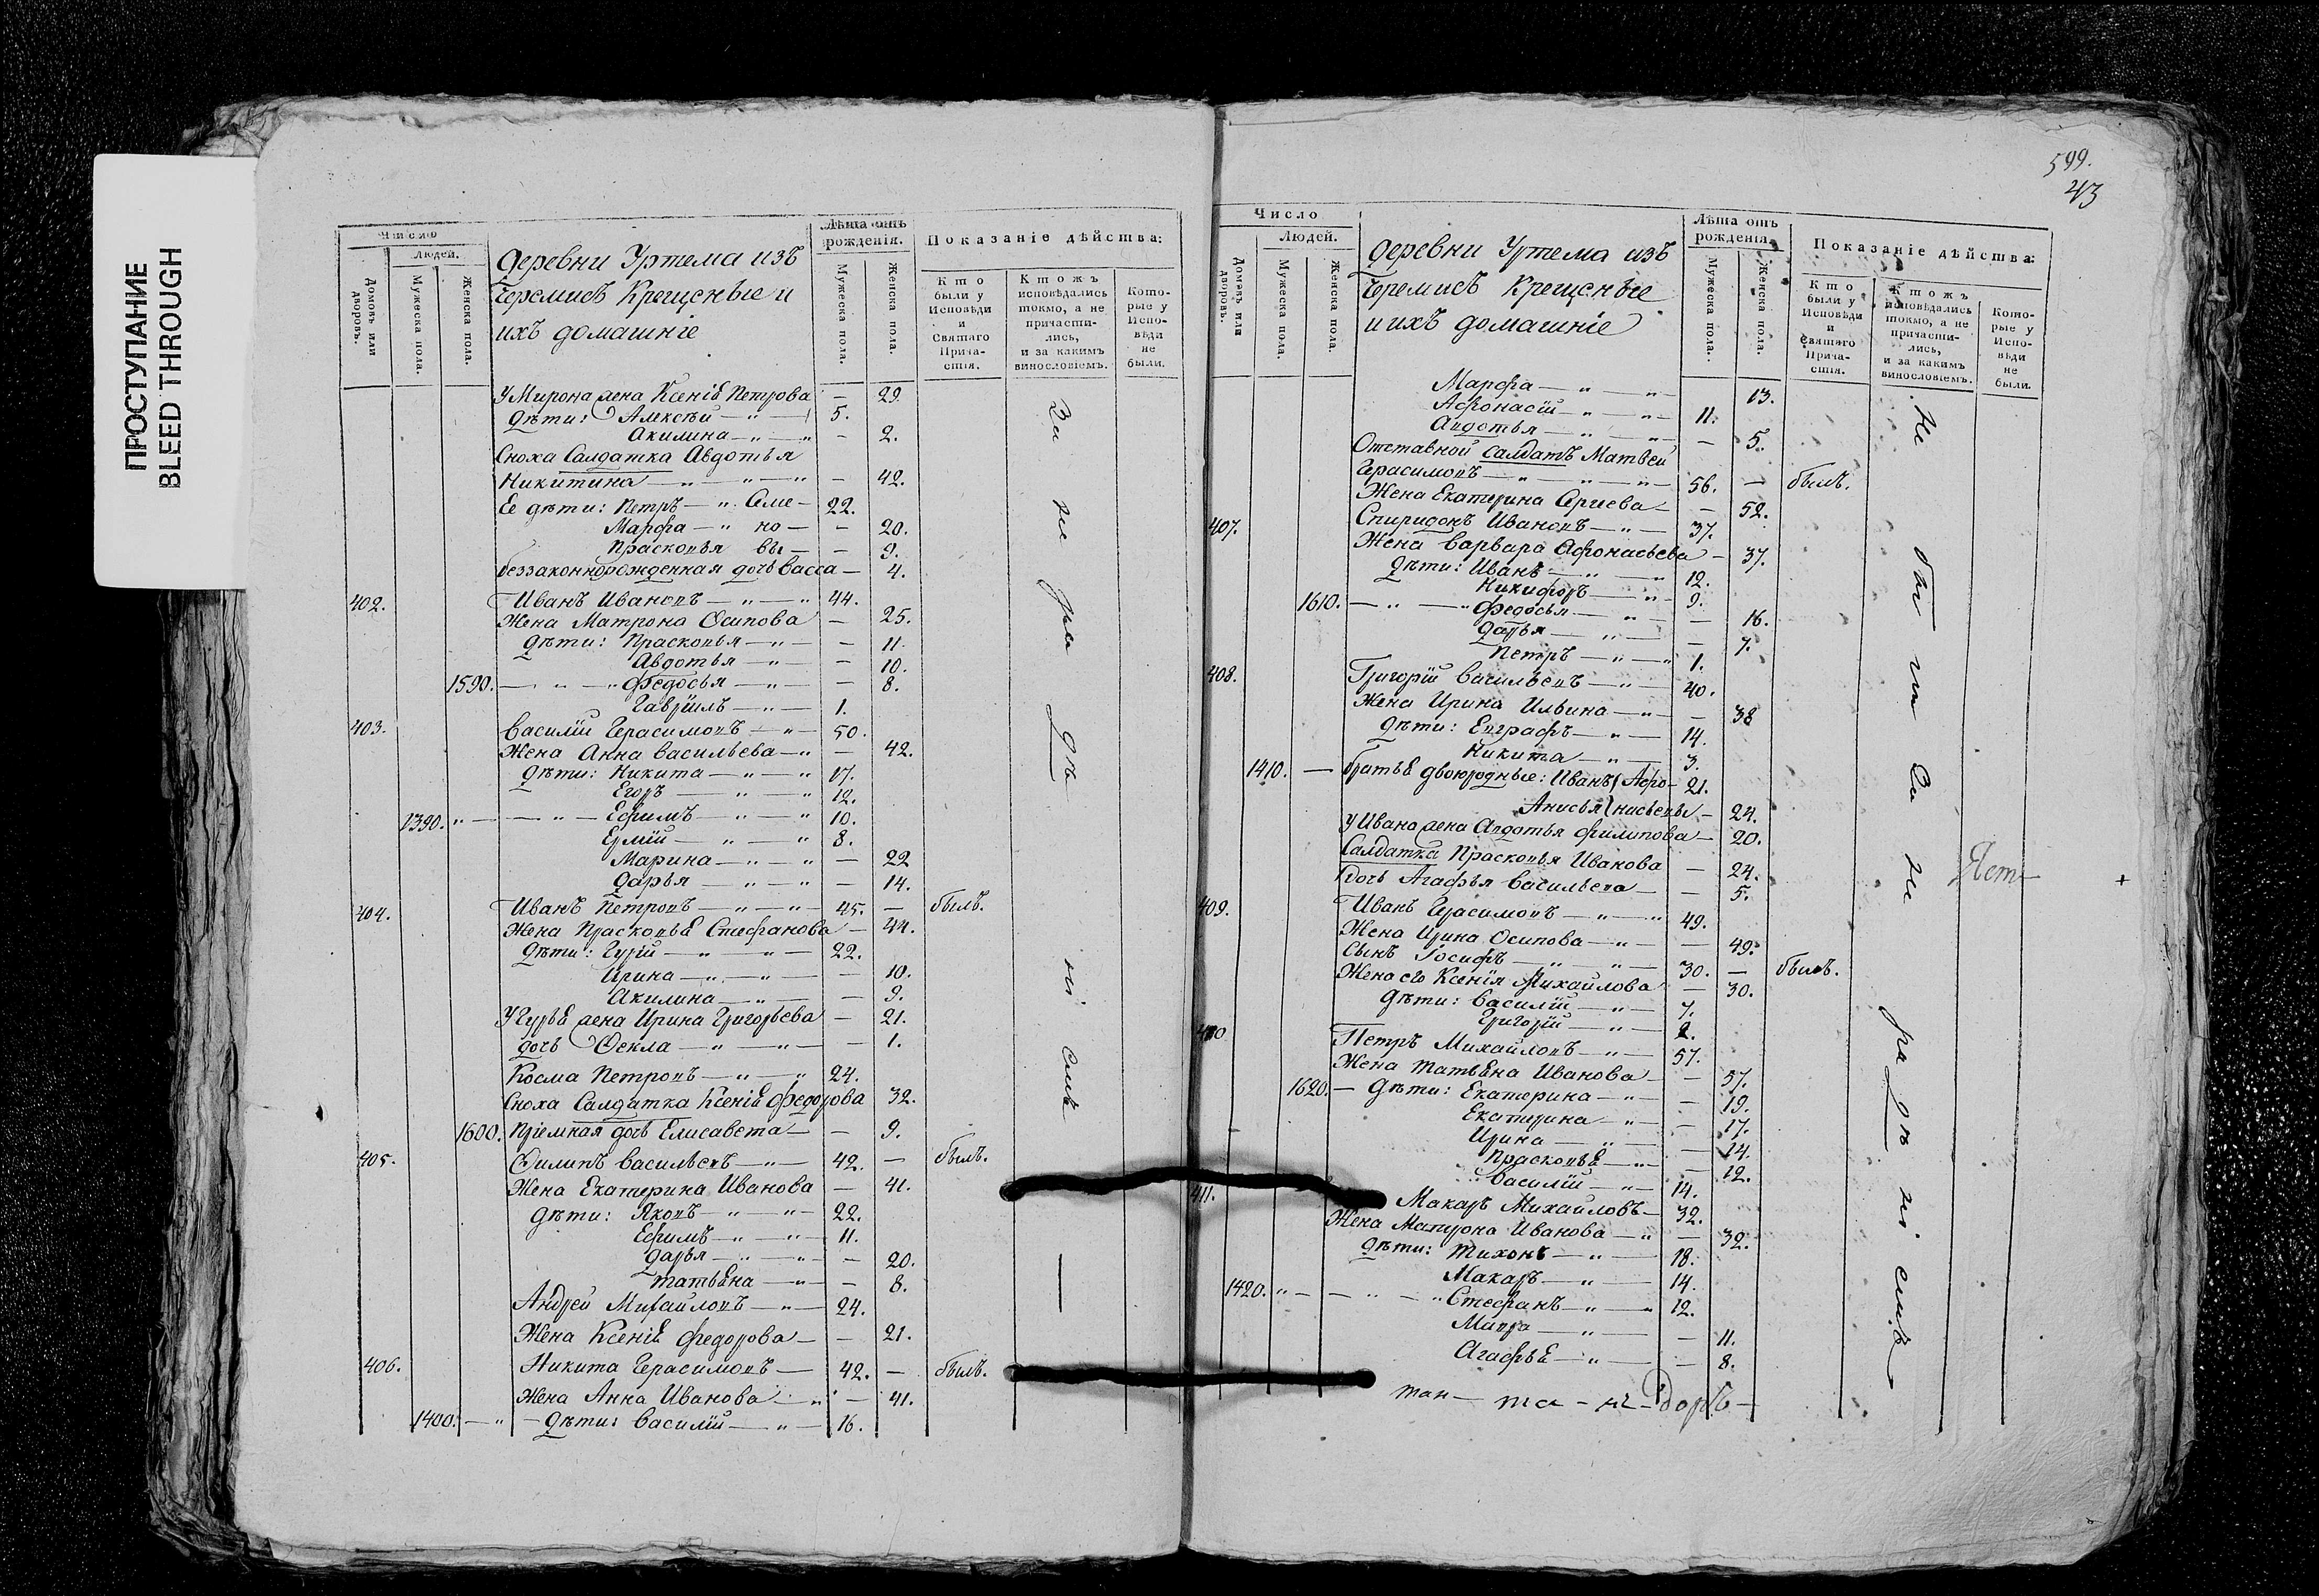 ПРОСТУПАНИЕ
BLEED THROUGH
Число
Людей.
Домовъ или дворовъ.
Мужеска пола.
Женска пола.
Деревни Уртема изъ
Черемисъ Крещеные и
ихъ домашніе
Лѣта отъ рожденія.
Мужеска пола.
Женска пола.
Показаніе дѣйства:
Кто были у Исповѣди и Святаго Прича-стія.
Ктожъ исповѣдались токмо, а не причасти-лись, и за какимъ винословіемъ.
Кото-рые у Испо-вѣди не были.
У Мирона жена Ксенія Петрова — 29
дѣти: Алексѣй — " — 5.
Акилина — " — " — 2.
Сноха Салдатка Авдотья
Никитина — " — " — " — 42.
Ее дѣти: Петръ — " Семе — 22.
Марфа — " но — — 20.
Прасковья вы — — 9.
беззаконнорожденная дочь Васса — 4.
402. Иванъ Ивановъ — " — " 44.
Жена Матрона Осипова — 25.
дѣти: Прасковья — " — — 11.
Авдотья — " — — 10.
1590. — " — " Федосья — " — — 8.
Гавріилъ — " — 1.
403. Василій Герасимовъ — " — 50.
Жена Анна Васильева — " — 42.
дѣти: Никита — " — " 17.
Егоръ — " — " 12.
1390. " — — " — Ефимъ — " — " 10.
Ермій — " — " 8.
Марина — " — " — 22
Дарья — " — " — 14.
404. Иванъ Петровъ — " — " — 45. — былъ.
Жена Прасковья Стефанова — 44.
дѣти: Гурій — " — " — 22.
Ирина — " — " — 10.
Акилина — " — — 9.
У Гурья жена Ирина Григорьева — 21.
дочь Фекла — " — " — — 1.
Косма Петровъ — " — " 24.
Сноха Салдатка Ксенія Федорова 32.
1600. Пріемная дочь Елисавета — — 9.
405. Филипъ Васильевъ — " — 42. — былъ.
Жена Екатерина Иванова — 41.
дѣти: Яковъ — " — " — 22.
Ефимъ — " — " — 11.
Дарья — " — " — 20.
Татьяна — " — — 8.
Андрей Михайловъ — " — 24.
Жена Ксенія Федорова — — 21.
406. Никита Герасимовъ — 42. — былъ.
Жена Анна Иванова — " — 41.
1400. — " — дѣти: Василій — " — 16.
За не ра дѣ ні емъ
599.
43
Число
Людей.
Домовъ или дворовъ.
Мужеска пола.
Женска пола.
Деревни Уртема изъ
Черемисъ Крещеные
и ихъ домашніе
Лѣта отъ рожденія.
Мужеска пола.
Женска пола.
Показаніе дѣйства:
Кто были у Исповѣди и Святаго Прича-стія.
Ктожъ исповѣдались токмо, а не причасти-лись, и за какимъ винословіемъ.
Кото-рые у Испо-вѣди не были.
Марфа — " — " — 13.
Афонасій — " — " — 11.
Авдотья — " — — 5.
Отставной Салдатъ Матвей
Герасимовъ — " — " — " — 56. — былъ.
Жена Екатерина Сергеева — — 52.
407. Спиридонъ Ивановъ — " — 37.
Жена Варвара Афонасьева — 37.
дѣти: Иванъ — " — " 12.
Никифоръ — " — 9.
1610. — " — " Федосья — " — — 16.
Дарья — " — — 7.
Петръ — " — " 1.
408. Григорій Васильевъ — " — 40.
Жена Ирина Ильина — " — — 38
дѣти: Евграфъ — " — 14.
Никита — " — 3.
1410. — братья двоюродные: Иванъ Афо- 21.
Анисья насьевы — 24.
У Ивана жена Авдотья Филипова — 20.
Салдатка Прасковья Иванова — 24.
дочь Агафья Васильева — — 5.
409. Иванъ Герасимовъ — " — " 49.
Жена Ирина Осипова — " — — 49.
Сынъ Іосифъ — " — " — 30. — былъ.
Жена его Ксенія Михайлова — 30.
дѣти: Василій — " — 7.
Григорій — " — 2.
410 Петръ Михайловъ — " — 57.
Жена Татьяна Иванова — — 57.
1620. — дѣти: Екатерина — " — — 19.
Екатерина — " — — 17.
Ирина — " — — 14.
Прасковья — " — — 12.
Василій — " — 14.
411. Макаръ Михайловъ — 32.
Жена Матрона Иванова — " — 32.
дѣти: Тихонъ — " — 18.
Макаръ — " — 14.
1420. " — — " — " Стефанъ — " — " 12.
Мавра — " — — 11.
Агафья — " — — 8.
Не бы ли за не ра дѣ ні емъ
+